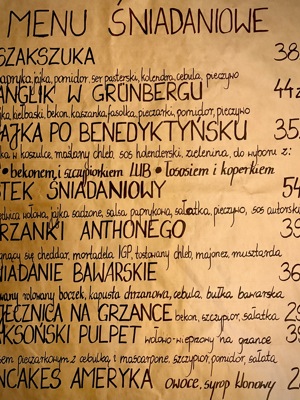 MENU ŚNIADANIOWE
SZAKSZUKA 38
papryka, jajka, pomidor, ser pasterski, kolendra, cebula, pieczywo
ANGLIK W GRÜNBERGU 44
jajka, kiełbaski, bekon, kaszanka, fasolka, pieczarki, pomidor, pieczywo
JAJKA PO BENEDYKTYŃSKU 35
w koszulce, maślany chleb, sos holenderski, zielenina, do wyboru z:
• bekonem i szczypiorkiem LUB • łososiem i koperkiem
STEK ŚNIADANIOWY 54
wołowa, jajka sadzone, salsa paprykowa, sałatka, pieczywo, sos autorski
GRZANKI ANTHONEGO 39
ciągnący się cheddar, mortadela IGP, tostowany chleb, majonez, musztarda
ŚNIADANIE BAWARSKIE 36
rolowany boczek, kapusta chrzanowa, cebula, bułka bawarska
JAJECZNICA NA GRZANCE bekon, szczypior, sałatka 29
SAKSOŃSKI PULPET wołowo-wieprzowy na grzance 39
sosem pieczarkowym z cebulką, & mascarpone, szczypior, pomidor, sałata
PANCAKES AMERYKA owoce, syrop klonowy 2